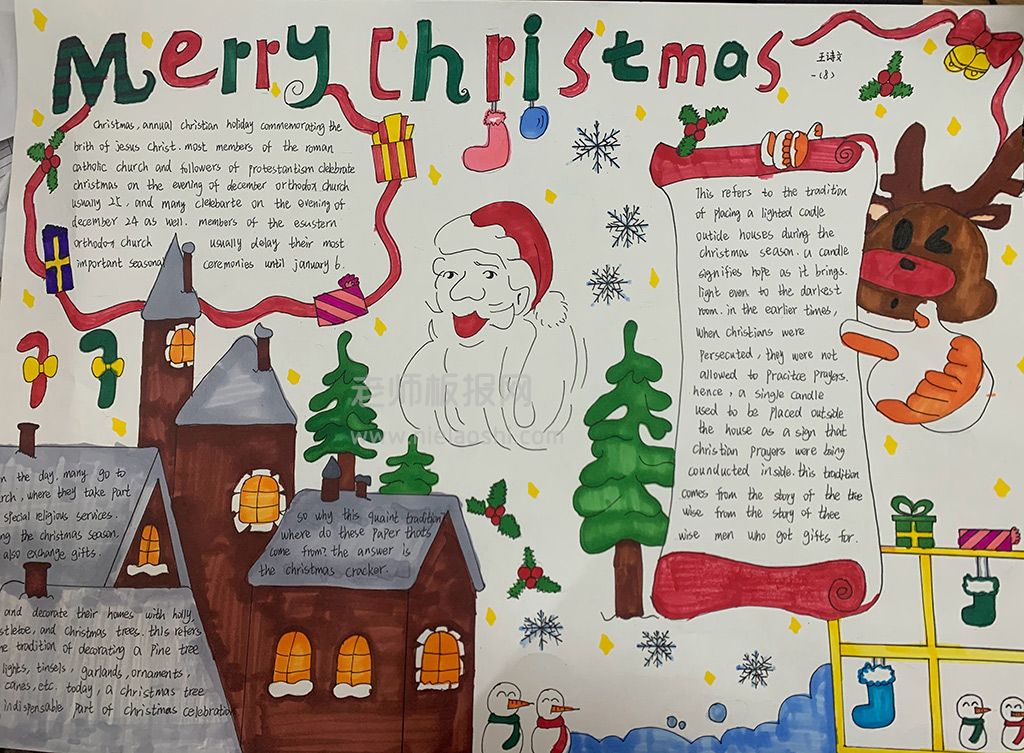 Merry Christmas
王诗文
一(8)
Christmas, annual christian holiday commemorating the
brith of jesus Christ. most members of the roman
catholic church and followers of protestantism clebrate
christmas on the evening of december orthodox church
usually 25, and many clebarte on the evening of
december 24 as well. members of the esustern
orthodox church usually delay their most
important seasonal ceremonies until january 6.
This refers to the tradition
of placing a lighted cadle
outside houses during the
christmas season. a candle
signifies hope as it brings.
light even to the darkest
room. in the earlier times,
when christians were
persecuted, they were not
allowed to practce prayers.
hence, a single candle
used to be placed outside
the house as a sign that
christian prayers were being
counducted inside. this tradition
comes from the story of the tree
wise from the story of thee
wise men who got gifts for.
老师板报网
www.nielaoshi.com
n the day, many go to
rch, where they take part
special religious services.
ng the christmas season.
also exchange gifts.
so why this quaint tradition
where do these paper thats
come from? the answer is
the christmas cracker.
and decorate their homes with holly,
stletoe, and christmas trees. this refers
e tradition of decorating a pine tree
lights, tinsels, garlands, ornaments,
canes, etc. today, a christmas tree
indispensable part of christmas celebration